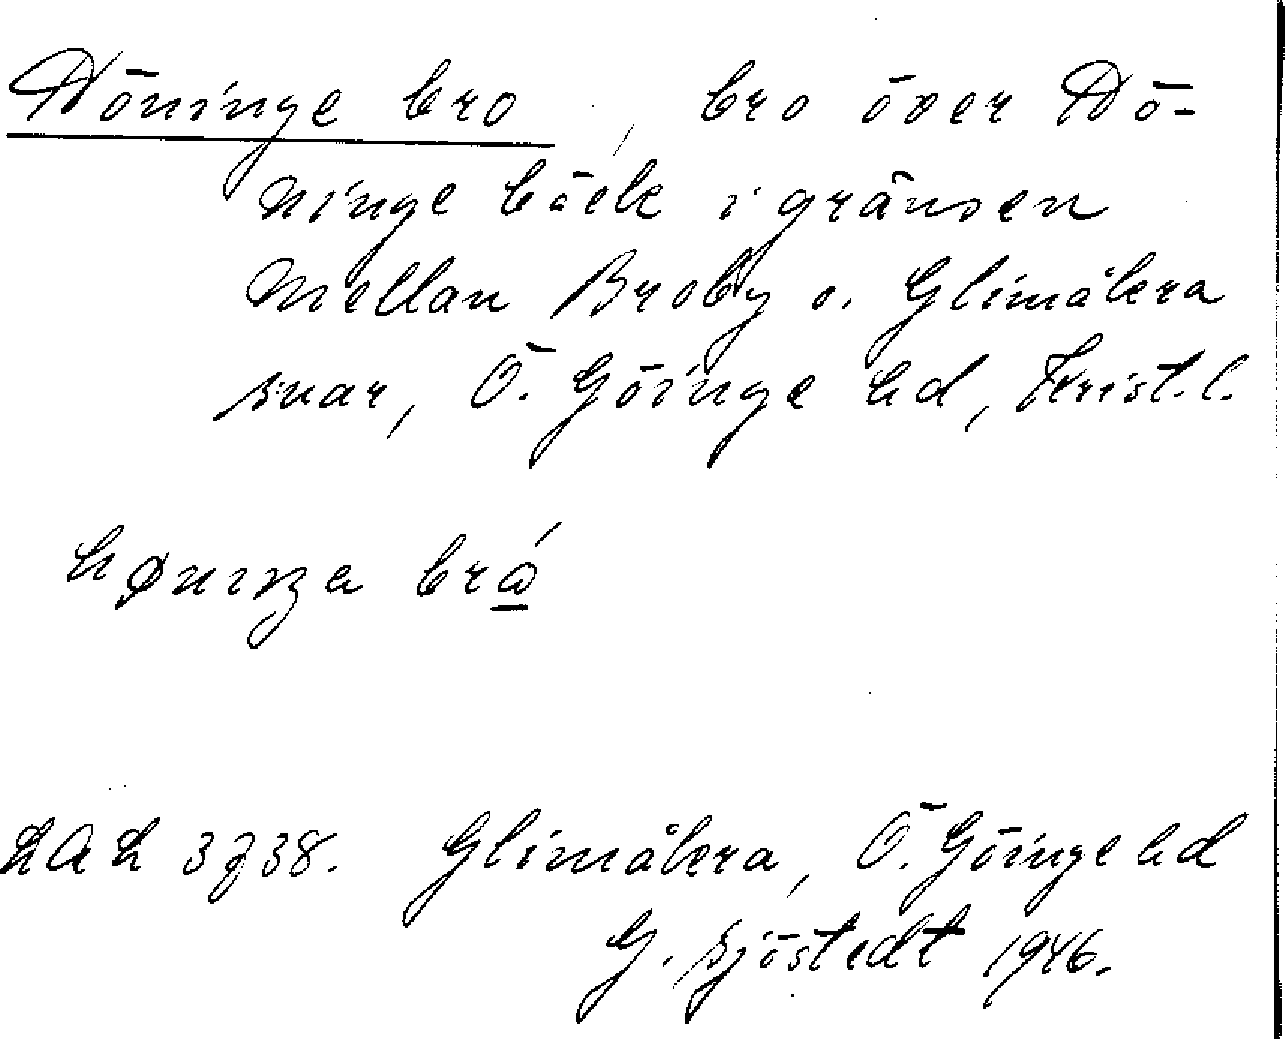 Höninge bro, bro över Hö-
ninge bäck i gränsen
mellan Broby o. Glimåkra
snar, Ö. Göinge hd, Krist. l.
hønıŋa brώ
LAL 3738. Glimåkra, Ö. Göinge hd
G. Sjöstedt 1946.